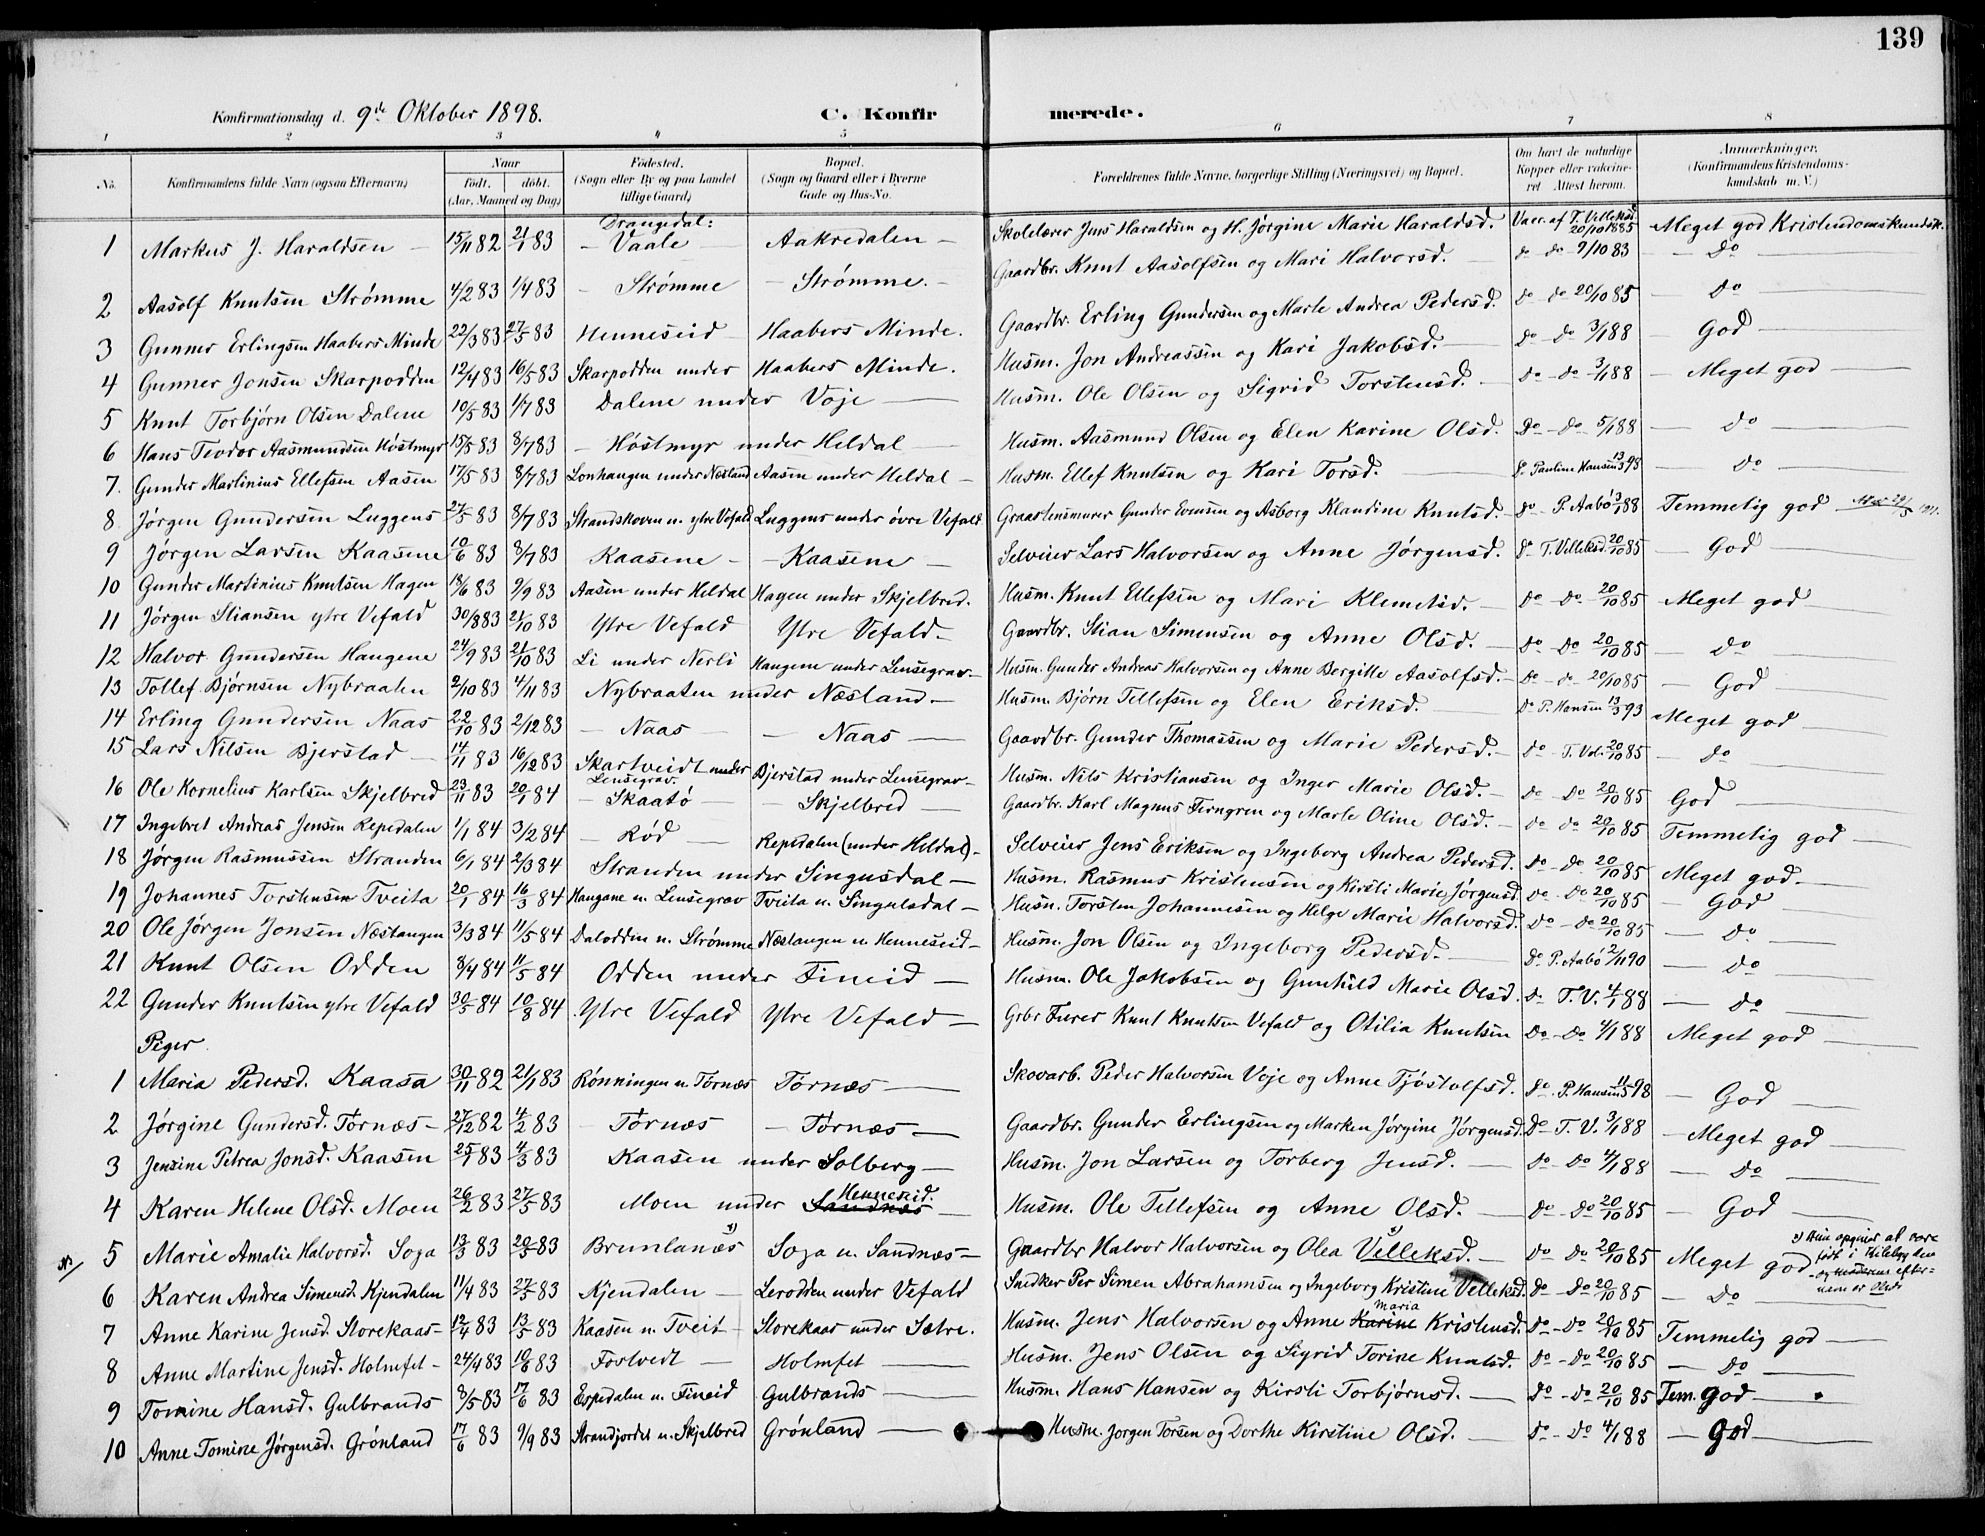 139
Konfirmationsdag d. 9de Oktober 1898. C. Konfirmerede.
1 2 3 4 5 6 7 8
No. Konfirmandens fulde Navn (ogsaa Efternavn) Naar født, døbt. (Aar, Maaned og Dag) Fødested. (Sogn eller By og paa Landet tillige Gaard) Bopæl. (Sogn og Gaard eller i Byerne Gade og Hus-No. Forældrenes fulde Navne, borgerlige Stilling (Næringsvei) og Bopæl. Om havt de naturlige Kopper eller vaccineret Attest herom. Anmærkninger. (Konfirmandens Kristendomskundskab m. V.)
1 Markus J. Haraldsen 15/11 82 21/1 83 Drangedal: Vaale Aakredalen Skolelærer Jens Haraldsen og H. Jørgine Marie Haraldsd. Vacc. af T. Velleksd. 20/10 1885 Meget god Kristendomskundsk.
2 Aasolf Knutsen Strømme 4/2 83 1/4 83 Strømme Strømme. Gaardbr. Knut Aasolfsen og Mari Halvorsd. do do 9/10 83 Do
3 Gunner Erlingsen Haabers Minde 22/3 83 27/5 83 Henneseid Haabers Minde. Gaardbr. Erling Gundersen og Marte Andrea Pedersd. do do 20/10 85 do
4 Gunner Jonsen Skarpodden 12/4 83 16/5 83 Skarpodden under Haabers Minde. Husm. Jon Andreassen og Kari Jakobsd. do do 3/1 88 God
5 Knut Torbjørn Olsen Dalene 10/5 83 1/7 83 Dalene under Voje Husm. Ole Olsen og Sigrid Torstensd. do do 3/1 88 Meget god
6 Hans Teodor Aasmundsen Høstmyr 15/5 83 8/7 83 Høstmyr under Heldal Husm. Aasmund Olsen og Elen Karine Olsd. Do Do 5/1 88 do
7. Gunder Martinius Ellefsen Aasen 17/5 83 8/7 83 Lonhangen under Næsland Aasen under Heldal Husm. Ellef Knutsen og Kari Torsd. Do Pauline Hansen 13/3 98 do
8 Jørgen Gundersen Luggens 27/5 83 8/7 83 Strandskoven u. ytre Vefald Luggens under øvre Vefald Graastensmurer Gunder Evensen og Asborg Klandine Knutsd. Do P. Aabø 3/1 88 Temmelig god
9 Jørgen Larsen Kaasene 10/6 83 8/7 83 Kaasene Kaasene Selveier Lars Halvorsen og Anne Jørgensd. Do T. Velleksd. 20/10 85 God
10 Gunder Martinius Knutsen Hagen 18/6 83 9/9 83 Aasen under Heldal Hagen under Skjelbred. Husm. Knut Ellefsen og Mari Klemetsd. Do Do 20/10 85 Meget god
11 Jørgen Stiansen ytre Vefald 30/8 83 21/10 83 Ytre Vefald Ytre Vefald Gaardbr. Stian Simensen og Anne Olsd. do Do 20/10 85 do
12 Halvor Gundersen Haugene 24/9 83 21/10 83 Li under Nerli Haugene under Lensegrav Husm. Gunder Andreas Halvorsen og Anne Bergitte Aasolfsd. Do do 20/10 85 God
13 Tollef Bjørnsen Nybraaten 2/10 83 4/11 83 Nybraaten under Næsland Husm. Bjørn Tellefsen og Elen Eriksd. Do P. Hansen 13/3 93 Meget god
14 Erling Gundersen Naas 22/10 83 2/12 83 Naas Naas Gaardbr. Gunder Thomassen og Marie Pedersd. do T. Vel. 20/10 85 do
15 Lars Nilsen Bjerstad 14/11 83 16/12 83 Skartveidt under Lensegrav Bjerstad under Lensegrav Husm. Nils Kristiansen og Inger Marie Olsd. do Do 20/10 85 God
16 Ole Kornelius Karlsen Skjelbred 23/11 83 20/1 84 Skaatø Skjelbred Gaardbr. Karl Magnus Ferngren og Marte Oline Olsd. do do 20/10 85 Temmelig god
17 Ingebret Andreas Jensen Repedalen 1/1 84 3/2 84 Rød Repedalen (under Heldal) Selveier Jens Eriksen og Ingeborg Andrea Pedersd. Do Do 20/10 85 Meget god
18 Jørgen Rasmussen Stranden 6/1 84 2/3 84 Stranden under Singusdal Husm. Rasmus Kristensen og Kirsti Marie Jørgensd. do Do 20/10 85 God
19 Johannes Torstensen Tveita 20/1 84 16/3 84 Haugane u. Lensegrav Tveita u. Singulsdal Husm. Torsten Johannesen og Helge Marie Halvorsd. Do Do 20/10 85 do
20 Ole Jørgen Jonsen Næstangen 3/3 84 11/5 84 Daloddin u. Strømme Næstangen u. Henneseid Husm. Jon Olsen og Ingeborg Pedersd. Do P. Aabø 2/11 90 do
21 Knut Olsen Odden 8/4 84 11/5 84 Odden under Fineid Husm. Ole Jakobsen og Gunhild Marie Olsd. do T. V. 4/1 88 do
22 Gunder Knutsen ytre Vefald 30/5 84 10/8 84 Ytre Vefald Ytre Vefald Grbr Fierer Knut Knutsen Vefald og Otilia Knutsen Do Do 4/1 88 Meget god
Piger.
1 Maria Pedersd. Kaasa 30/11 82 21/1 83 Rønningen u. Tornæs Tornæs Skovarb. Peder Halvorsen Voje og Anne Tjøstolfsd. Do. P. Hansen 11/5 98 God
2 Jørgine Gundersd. Tornæs 27/12 82 4/2 83 Tornæs Tornæs Gaardbr. Gunder Erlingsen og Marken Jørgine Jørgensd. Do T. V. 3/1 88 Meget god
3 Jensine Petrea Jonsd. Kaasen 25/1 83 4/3 83 Kaasen under Solberg Husm. Jon Larsen og Torberg Jensd. Do Do 4/1 88 Do
4 Karen Helene Olsd. Moen 26/2 83 27/5 83 Moen under Sandnæs Henneseid. Husm. Ole Tellefsen og Anne Olsd. Do Do 20/10 85 God
5 Marie Amalie Halvorsd. Soga 13/3 83 20/5 83 Brunlanæs 1) Soga u. Sandnæs Gaardbr Halvor Halvorsen og Olea Velleksd. 1) Do Do 20/10 85 Meget god 1) Hun opgives at være født i Kileby den og Moderens efternavn er Olsd.
6 Karen Andrea Simensd. Kjendalen 11/4 83 27/5 83 Kjendalen Lerodden under Vefald Snedker Per Simen Abrahamsen og Ingeborg Kristine Velleksd. Do Do 20/10 85 Do
7 Anne Karine Jensd. Storekaas 12/4 83 13/5 83 Kaasen u. Tveit Storekaas under Sætre. Husm. Jens Halvorsen og Anne Karine Maria Kristensd. Do Do 20/10 85 Temmelig god
8 Anne Martine Jensd. Holmfet 24/4 83 10/6 83 Fostvedt Holmfet Husm. Jens Olsen og Sigrid Torine Knutsd. Do Do 20/10 85 Do
9 Tomine Hansd. Gulbrands 8/5 83 17/6 83 Espedalen u. Fineid Gulbrands Husm. Hans Hansen og Kirsti Torbjørnsd. do Do 20/10 85 Tem. god
10 Anne Tomine Jørgensd. Grønland 17/6 83 9/9 83 Strandjordet u. Skjelbred Grønland Husm. Jørgen Torsen og Dorthe Kirstine Olsd. do Do 4/1 88 God